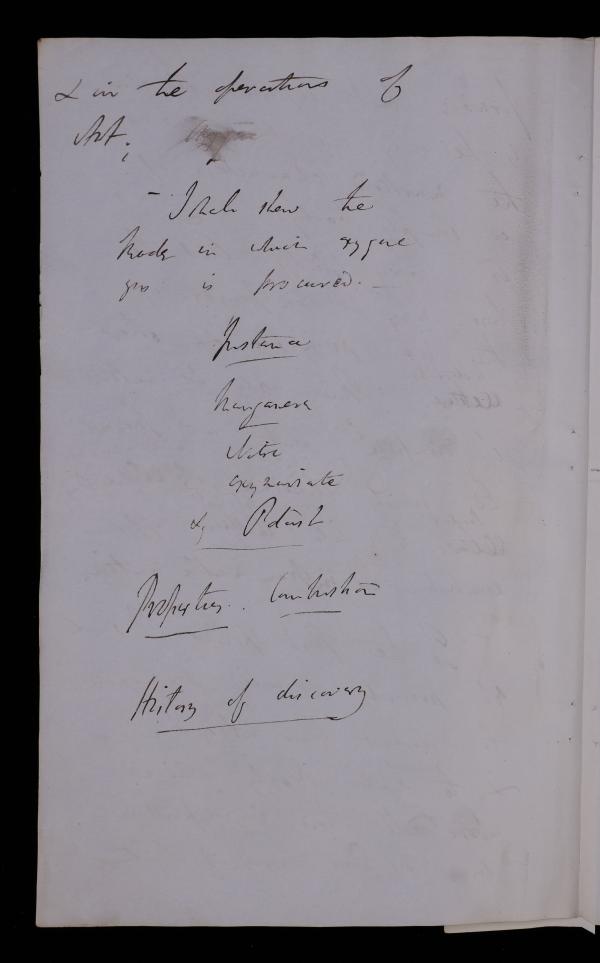 & in the operations of
Art;
- I shall shew the
Mode in which oxygene
gas is procured. -
Instance
Manganese
Nitre
oxymuriate
of Potash
Properties. Combustion
History of discovery